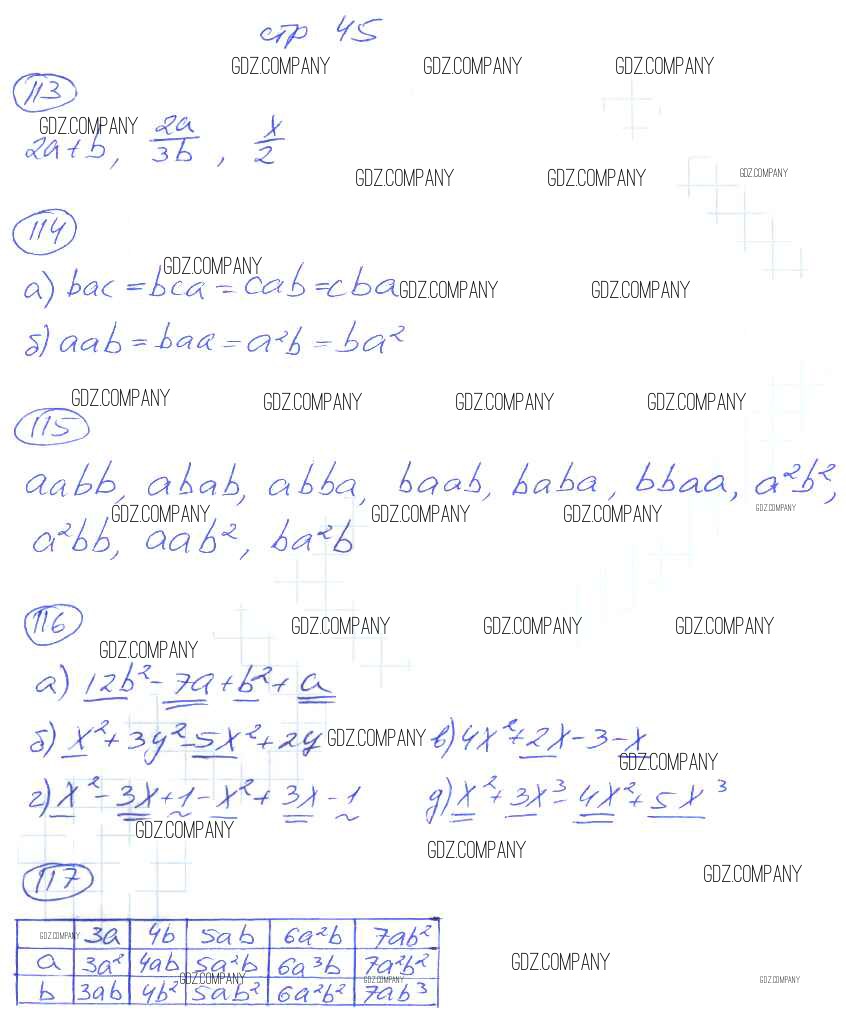 стр 45
GDZ.COMPANY GDZ.COMPANY GDZ.COMPANY
113
GDZ.COMPANY
2a+b, 2a/3b, x/2
GDZ.COMPANY GDZ.COMPANY GDZ.COMPANY
114
GDZ.COMPANY
а) bac = bca = cab = cba
GDZ.COMPANY GDZ.COMPANY
б) aab = baa = a²b = ba²
GDZ.COMPANY GDZ.COMPANY GDZ.COMPANY GDZ.COMPANY
115
aabb, abab, abba, baab, baba, bbaa, a²b²,
GDZ.COMPANY GDZ.COMPANY GDZ.COMPANY GDZ.COMPANY
a²bb, aab², ba²b
116
GDZ.COMPANY GDZ.COMPANY GDZ.COMPANY
GDZ.COMPANY
а) 12b² - 7a + b² + a
б) x² + 3y² - 5x² + 2y GDZ.COMPANY в) 4x² + 2x - 3 - x
GDZ.COMPANY
г) x² - 3x + 1 - x² + 3x - 1 д) x² + 3x³ - 4x² + 5x³
GDZ.COMPANY
GDZ.COMPANY
GDZ.COMPANY
117
GDZ.COMPANY 3a 4b 5ab 6a²b 7ab²
a 3a² 4ab 5a²b 6a³b 7a²b²
GDZ.COMPANY
GDZ.COMPANY GDZ.COMPANY GDZ.COMPANY
b 3ab 4b² 5ab² 6a²b² 7ab³